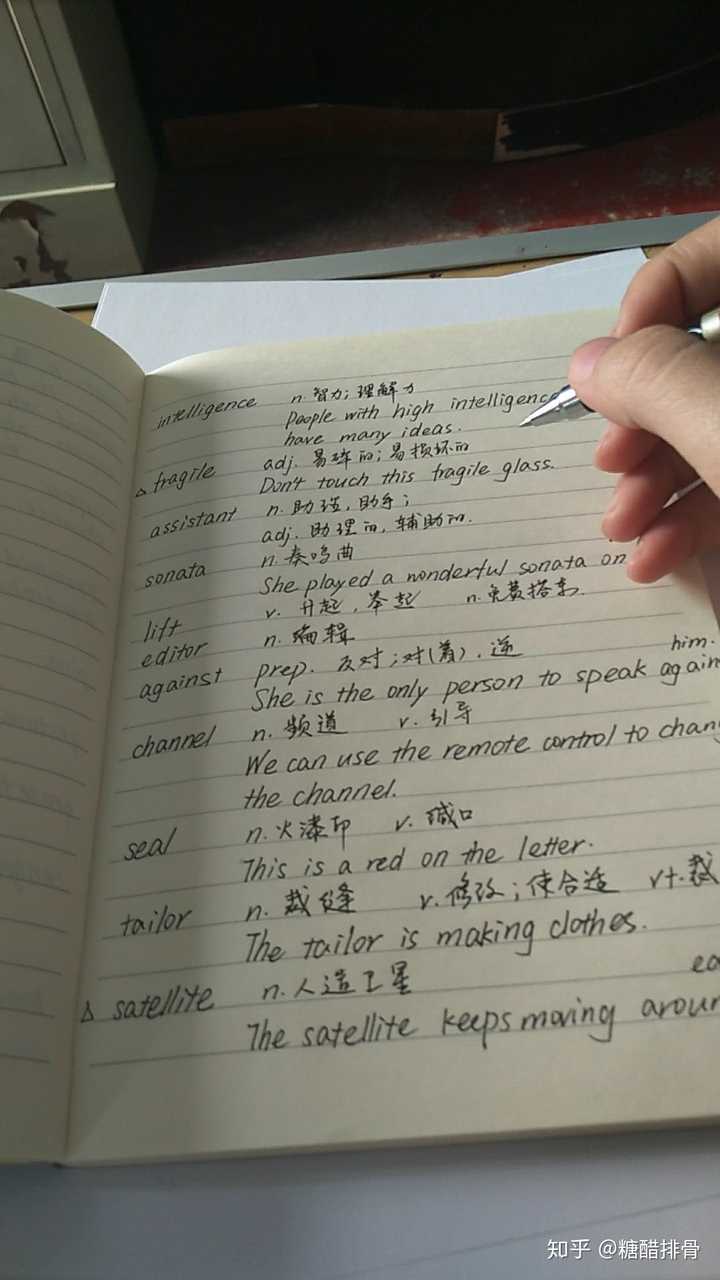 intelligence n. 智力；理解力
People with high intelligence
have many ideas.
△ fragile adj. 易碎的；易损坏的
Don't touch this fragile glass.
assistant n. 助理，助手；
adj. 助理的，辅助的.
sonata n. 奏鸣曲
She played a wonderful sonata on
lift v. 升起，举起 n. 免费搭车.
editor n. 编辑
against prep. 反对；对(着)，逆
him.
She is the only person to speak again
channel n. 频道 v. 引导
We can use the remote control to chang
the channel.
seal n. 火漆印 v. 缄口
This is a red on the letter.
tailor n. 裁缝 v. 修改；使合适 vt. 裁
The tailor is making clothes.
△ satellite n. 人造卫星
ea
The satellite keeps moving aroun
知乎 @糖醋排骨